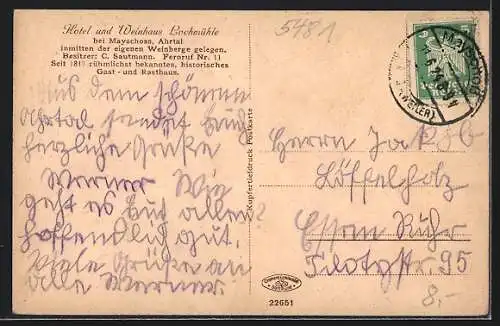 Hotel und Weinhaus Lochmühle
bei Mayschoss, Ahrtal
inmitten der eigenen Weinberge gelegen.
Besitzer: C. Sautmann. Fernruf Nr. 11
rühmlichst bekanntes, historisches
Gast- und Rasthaus.
5481
Aus dem schönen
Ahrtal sendet Euch
herzliche Grüße
Werner Wie
geht es Euch allen?
hoffendlich gut.
Viele Grüße an
alle Werner.
Kupfertiefdruck Postkarte
22651
Herrn
Löffelholz
Essen Ruhr
95
8,-